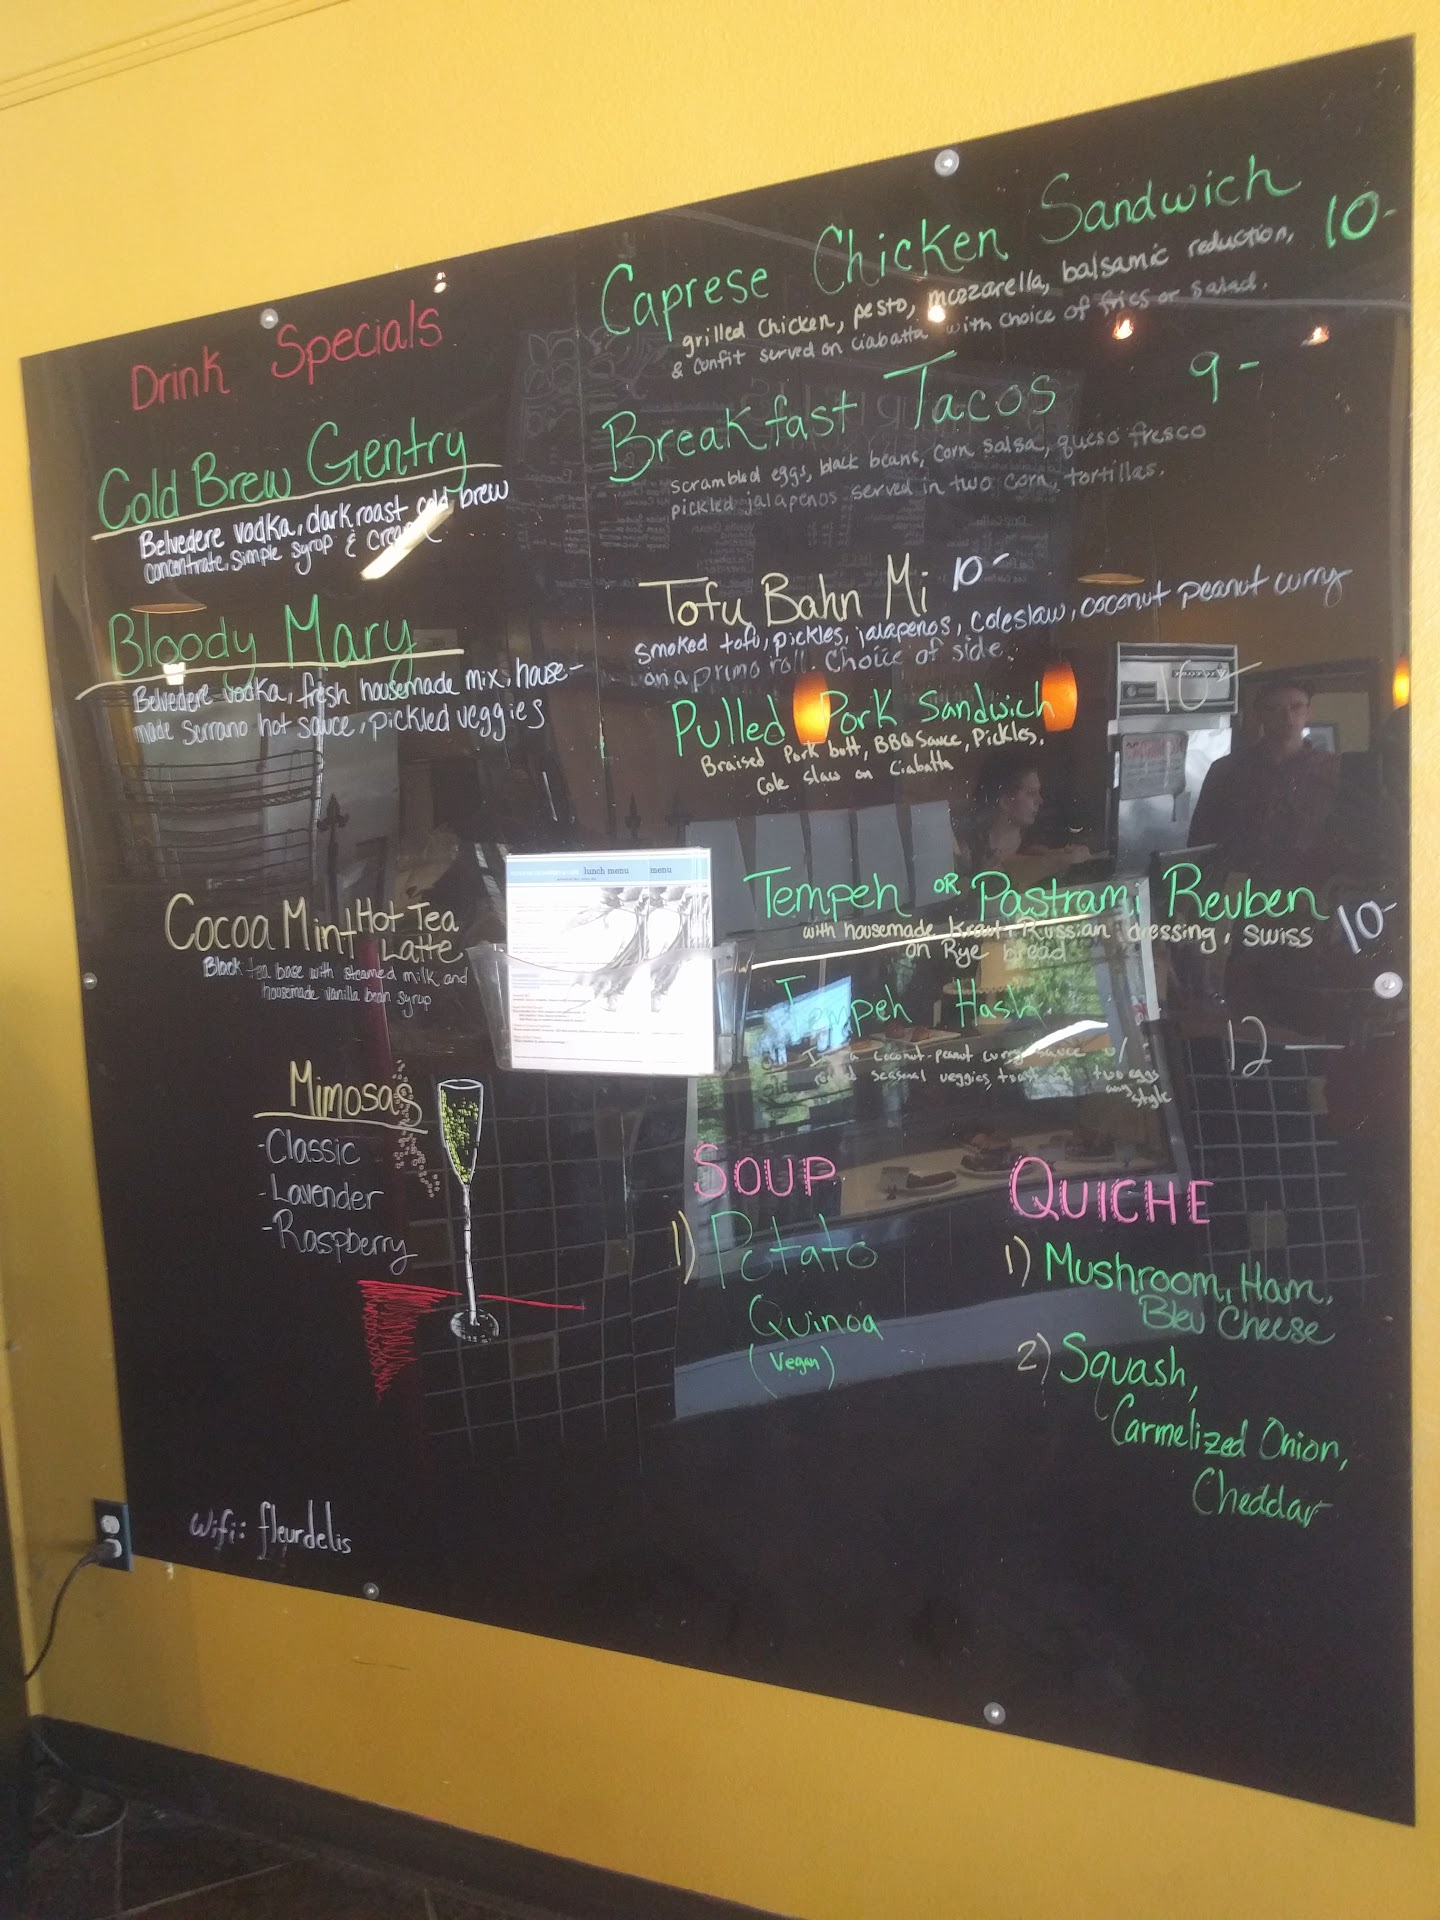 Drink Specials
Cold Brew Gentry
Belvedere vodka, dark roast cold brew
concentrate, simple syrup & cream
Bloody Mary
Belvedere vodka, fresh housemade mix, house-
made Serrano hot sauce, pickled veggies
Cocoa Mint Hot Tea
Latte
Black tea base with steamed milk and
housemade vanilla bean syrup
Mimosas
-Classic
-Lavender
-Raspberry
Wifi: fleurdelis
lunch menu
menu
Caprese Chicken Sandwich 10-
grilled chicken, pesto, mozzarella, balsamic reduction,
& confit served on ciabatta with choice of fries or salad.
Breakfast Tacos 9-
scrambled eggs, black beans, corn salsa, queso fresco
pickled jalapenos served in two corn tortillas.
Tofu Bahn Mi 10-
smoked tofu, pickles, jalapenos, coleslaw, coconut peanut curry
on a primo roll. Choice of side.
Pulled Pork Sandwich 10-
Braised Pork butt, BBQ Sauce, Pickles,
Cole slaw on Ciabatta
Tempeh OR Pastrami Reuben 10-
with housemade kraut, Russian dressing, swiss
on Rye bread
Tempeh Hash 12-
In a coconut-peanut curry sauce w/
seasonal veggies, two eggs
any style
SOUP
1) Potato
Quinoa
(Vegan)
QUICHE
1) Mushroom, Ham,
Bleu Cheese
2) Squash,
Carmelized Onion,
Cheddar